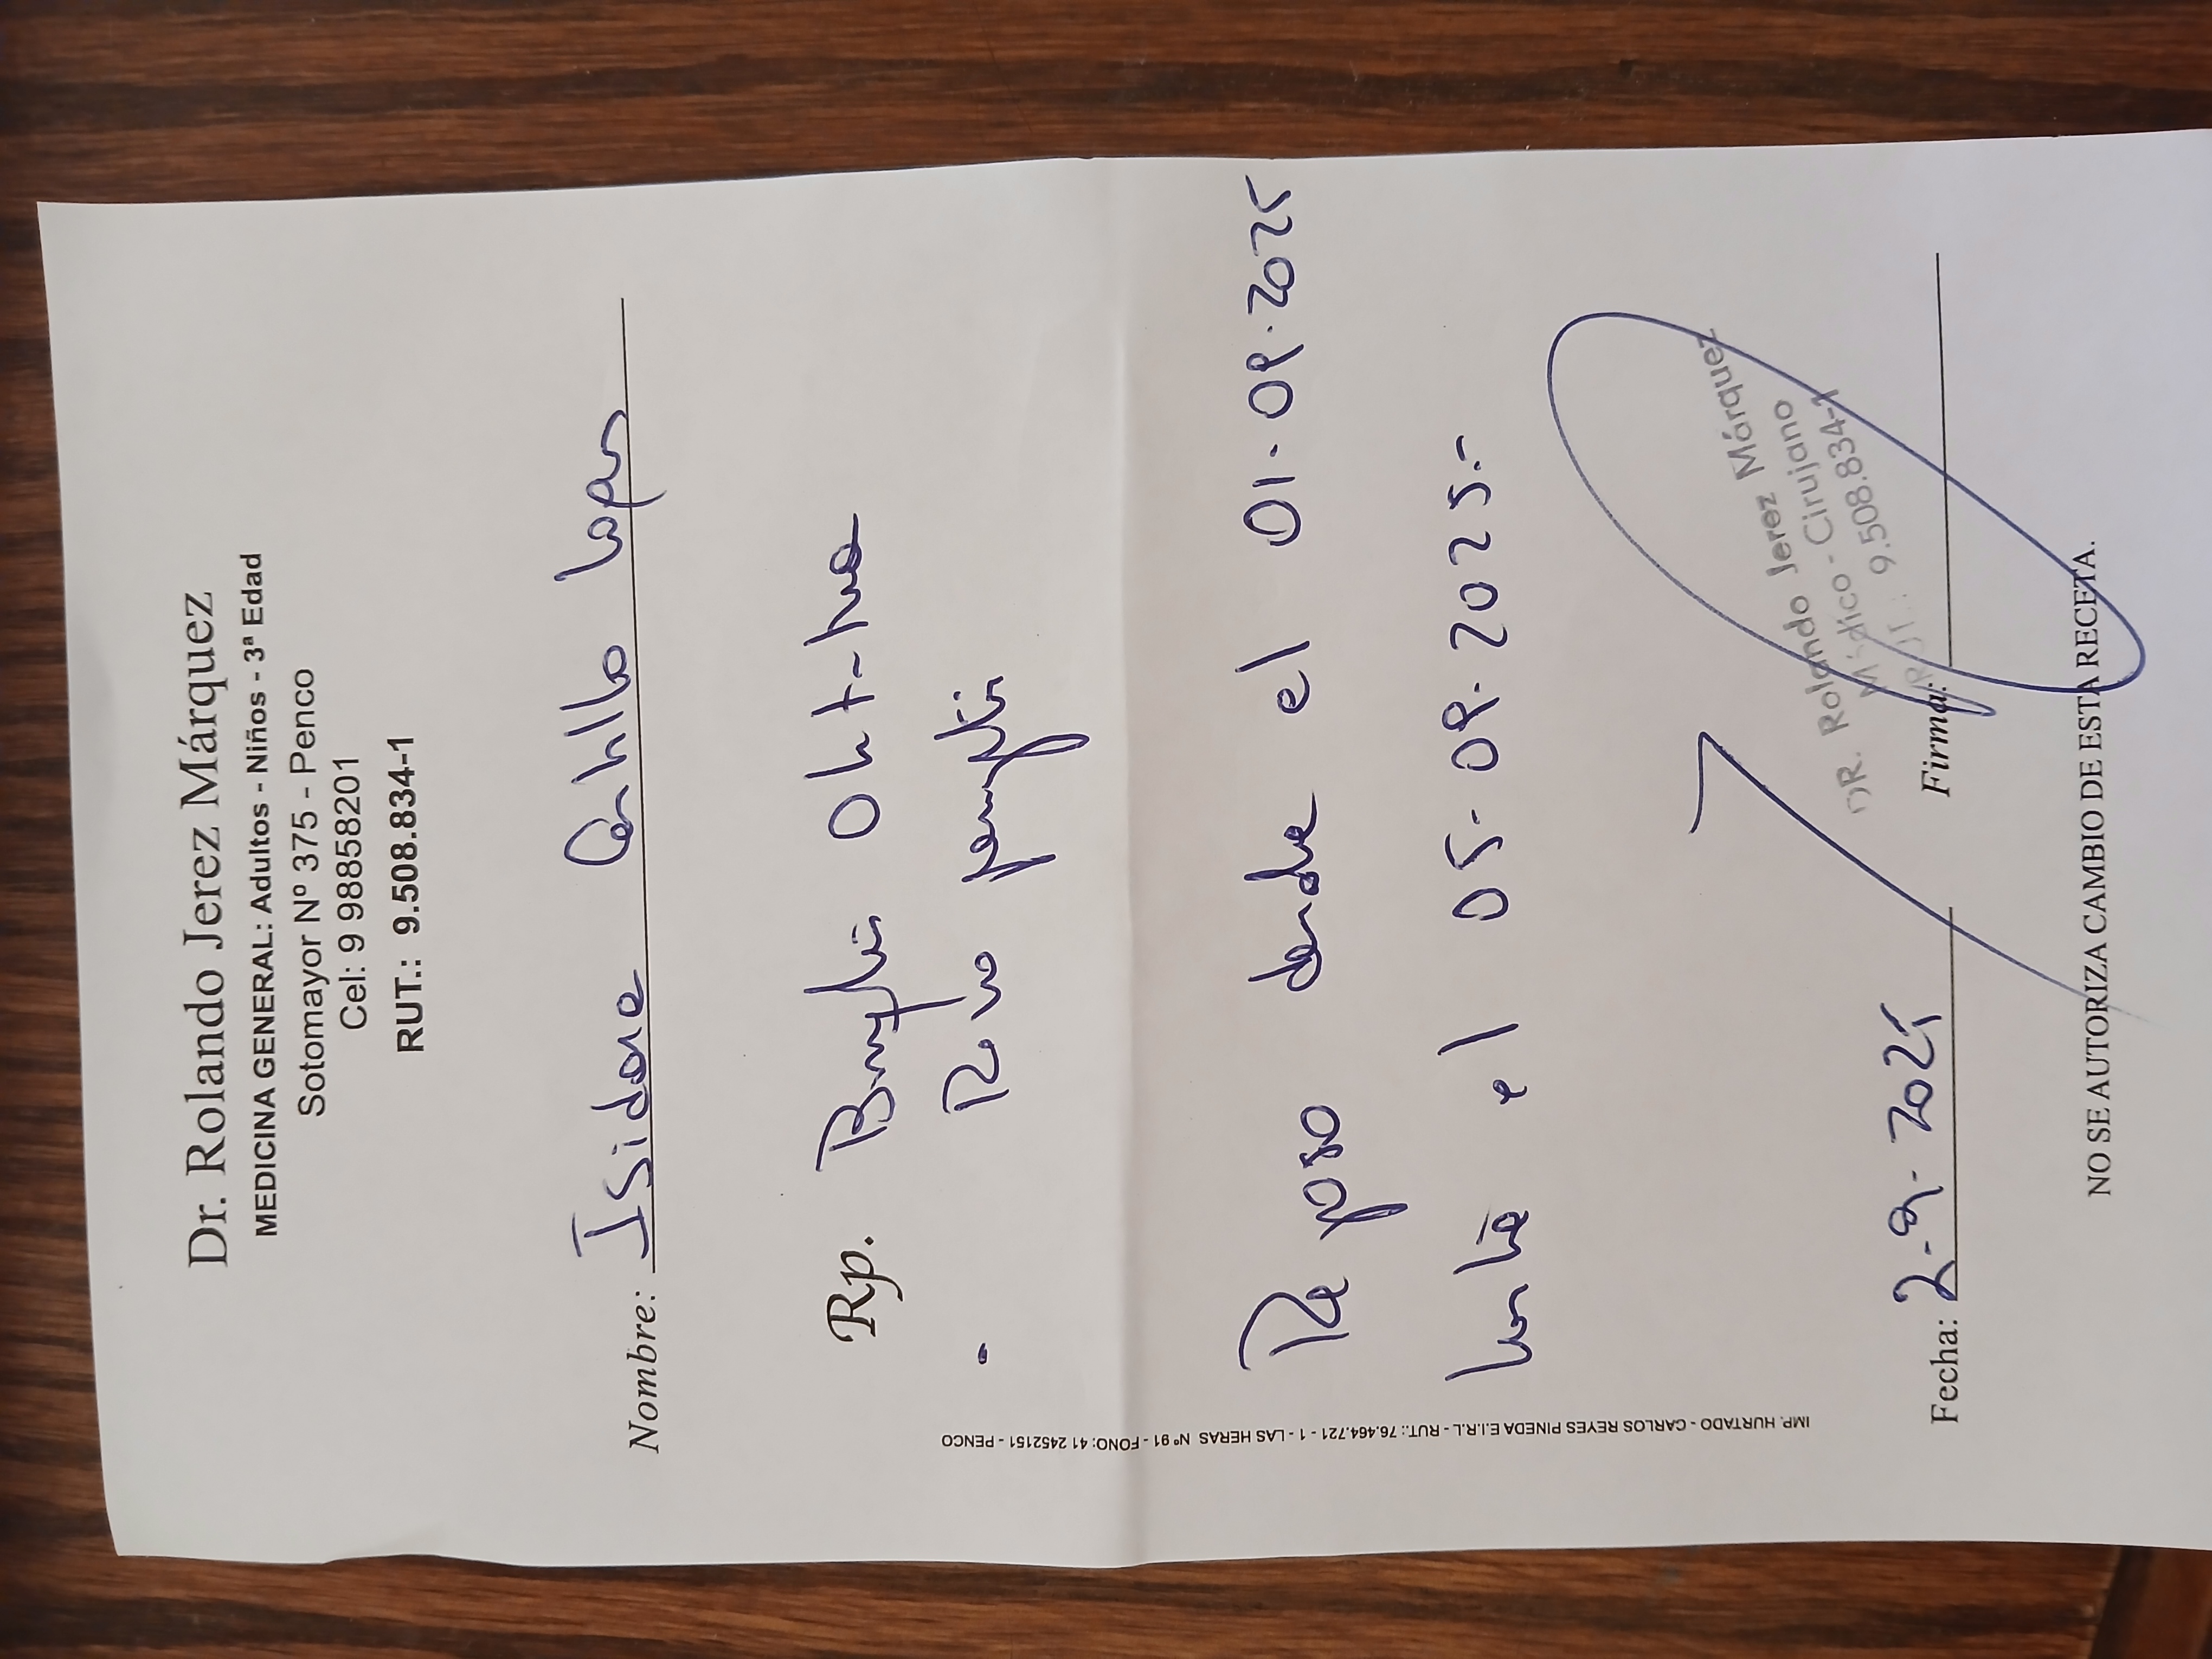 Dr. Rolando Jerez Márquez
MEDICINA GENERAL: Adultos - Niños - 3ª Edad
Sotomayor Nº 375 - Penco
Cel: 9 98858201
RUT.: 9.508.834-1
Nombre: Isidora
Rp.
Reposo desde el 01.09.2025
hasta el 05.09.2025.-
DR. Rolando Jerez Márquez
Médico - Cirujano
RUT.: 9.508.834-1
Fecha: 2-9-2025 Firma:
NO SE AUTORIZA CAMBIO DE ESTA RECETA.
IMP. HURTADO - CARLOS REYES PINEDA E.I.R.L - RUT.: 76.464.721 - 1 - LAS HERAS Nº 91 - FONO: 41 2452151 - PENCO